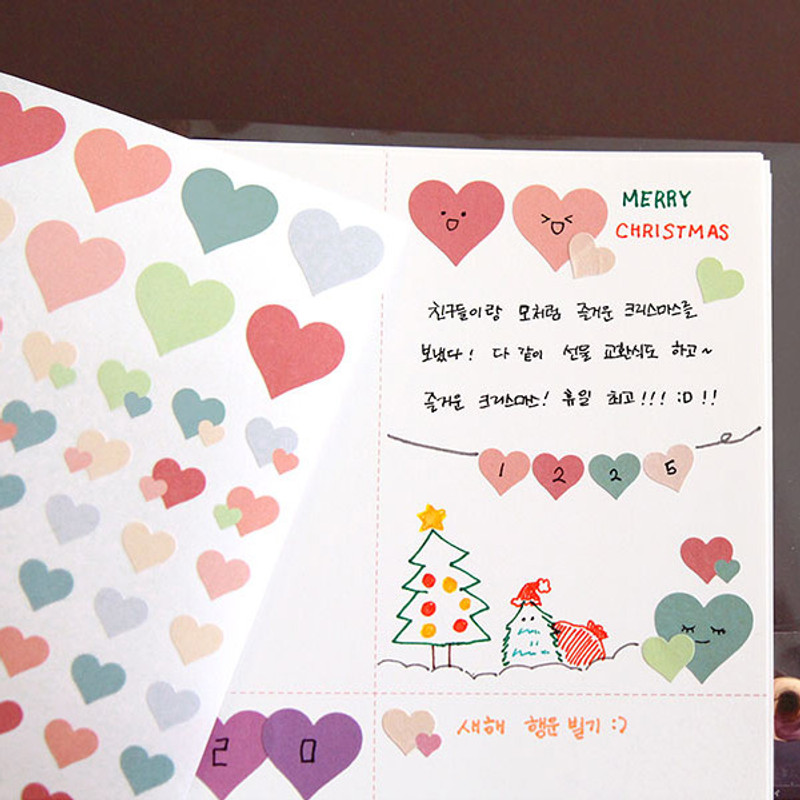 MERRY
CHRISTMAS
친구들이랑 모처럼 즐거운 크리스마스를
보냈다! 다 같이 선물 교환식도 하고~
즐거운 크리스마스! 휴일 최고!!! :D !!
1 2 2 5
20
새해 행운 빌기 :)